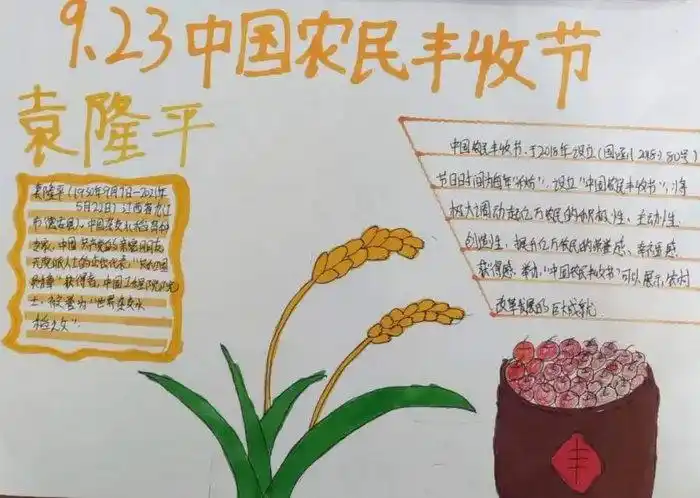 9.23中国农民丰收节
袁隆平
袁隆平(1930年9月7日—2021年
5月22日)江西省九江
市德安县)。中国杂交水稻育种
专家,中国共产党的亲密朋友
无党派人士的杰出代表,"共和国
勋章"获得者,中国工程院院士
士,被誉为"世界杂交水
稻之父".
中国农民丰收节,于2018年设立(国函〔2018〕80号)
节日时间为每年"秋分",设立"中国农民丰收节",将
极大调动起亿万农民的积极性、主动性、
创造性,提升亿万农民的荣誉感、幸福感、
获得感,举办"中国农民丰收节"可以展示农村
改革发展的巨大成就
丰